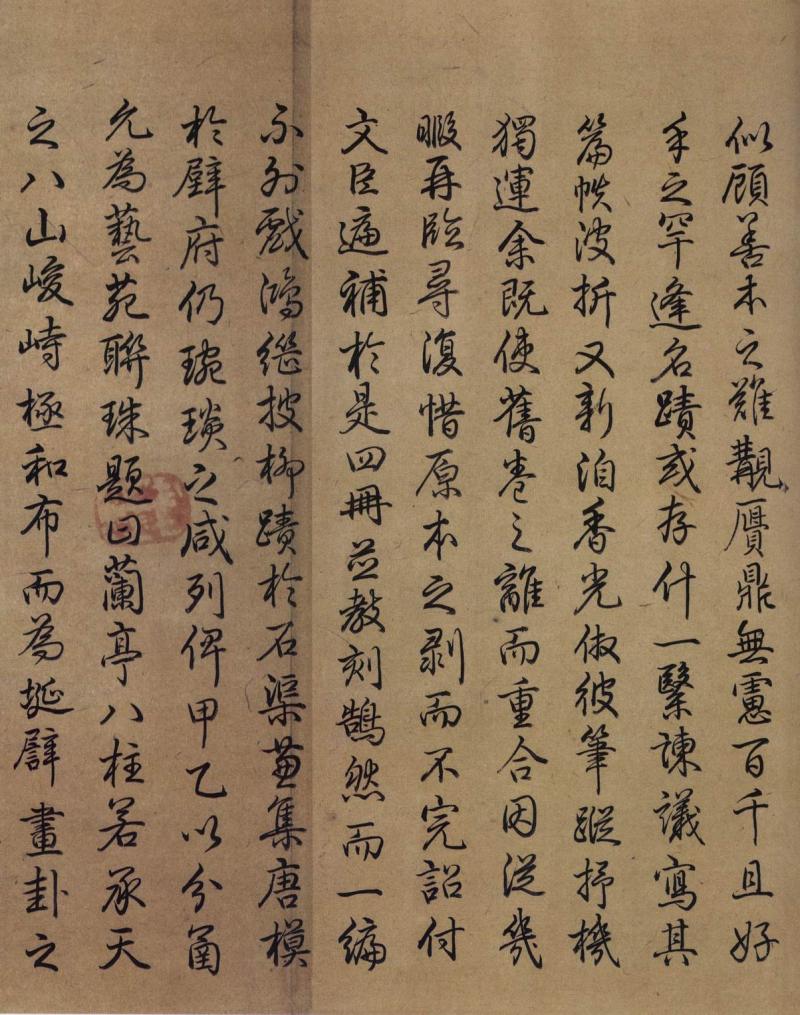 似顧善本之難覯贋鼎無慮百千且好
手之罕逢名蹟或存什一繄諫議寫其
篇帙波折又新洎香光倣彼筆蹤抒機
獨運余既使舊卷之離而重合因从幾
暇再臨尋復惜原本之剥而不完詔付
文臣遍補於是四冊並教刻鵠然而一編
不外戲鴻繼披柳蹟於石渠並集唐模
於壁府仍琬琰之咸列俾甲乙以分函
允為藝苑聯珠題曰蘭亭八柱若承天
之八山峻峙極和布而為埏劈畫卦之